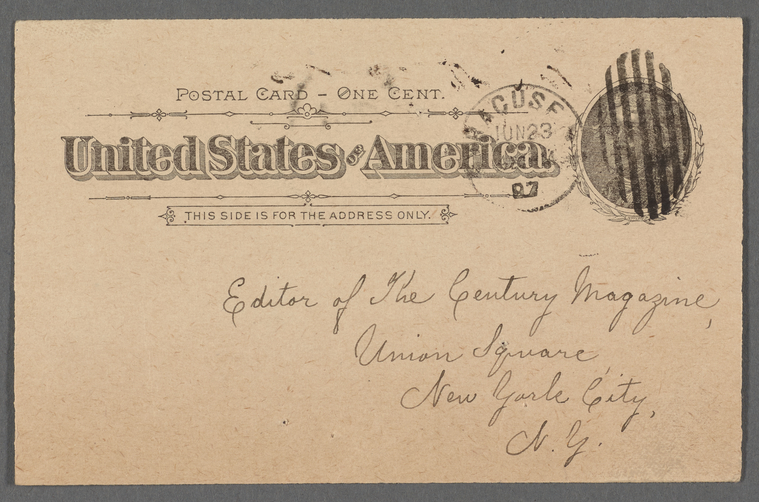 POSTAL CARD – ONE CENT.
United States of America.
THIS SIDE IS FOR THE ADDRESS ONLY.
JUN 23
87
Editor of The Century Magazine,
Union Square,
New York City,
N.Y.